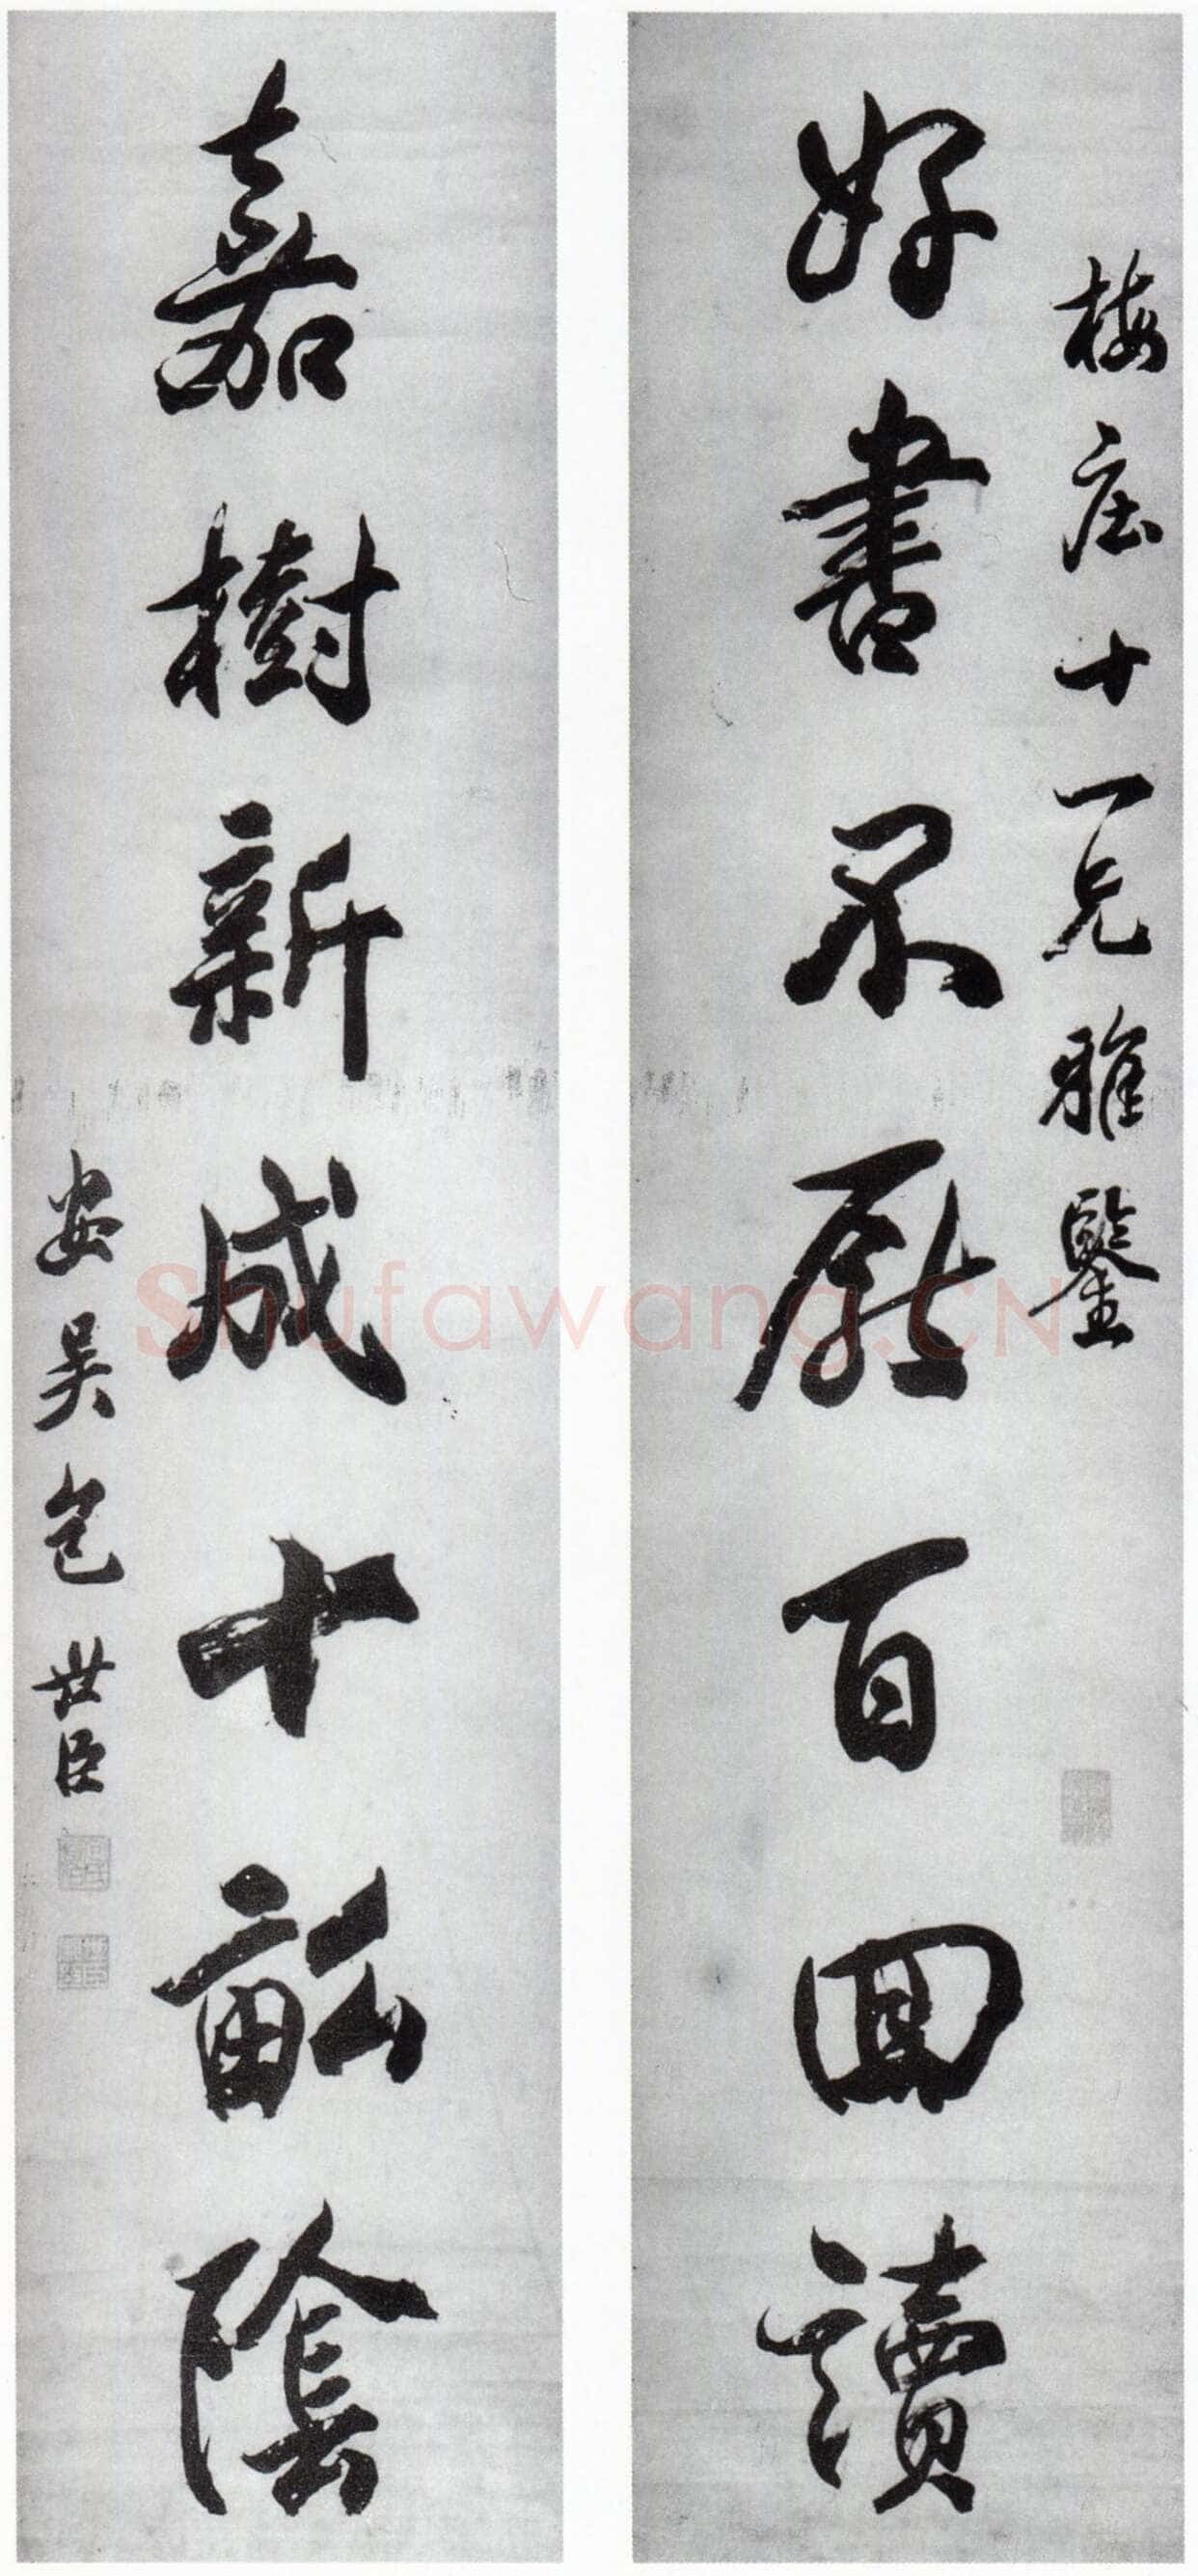 梅庄十一兄雅鑒
好書不厭百回讀
嘉樹新成十畝陰
安吳包世臣
Shufawang.CN